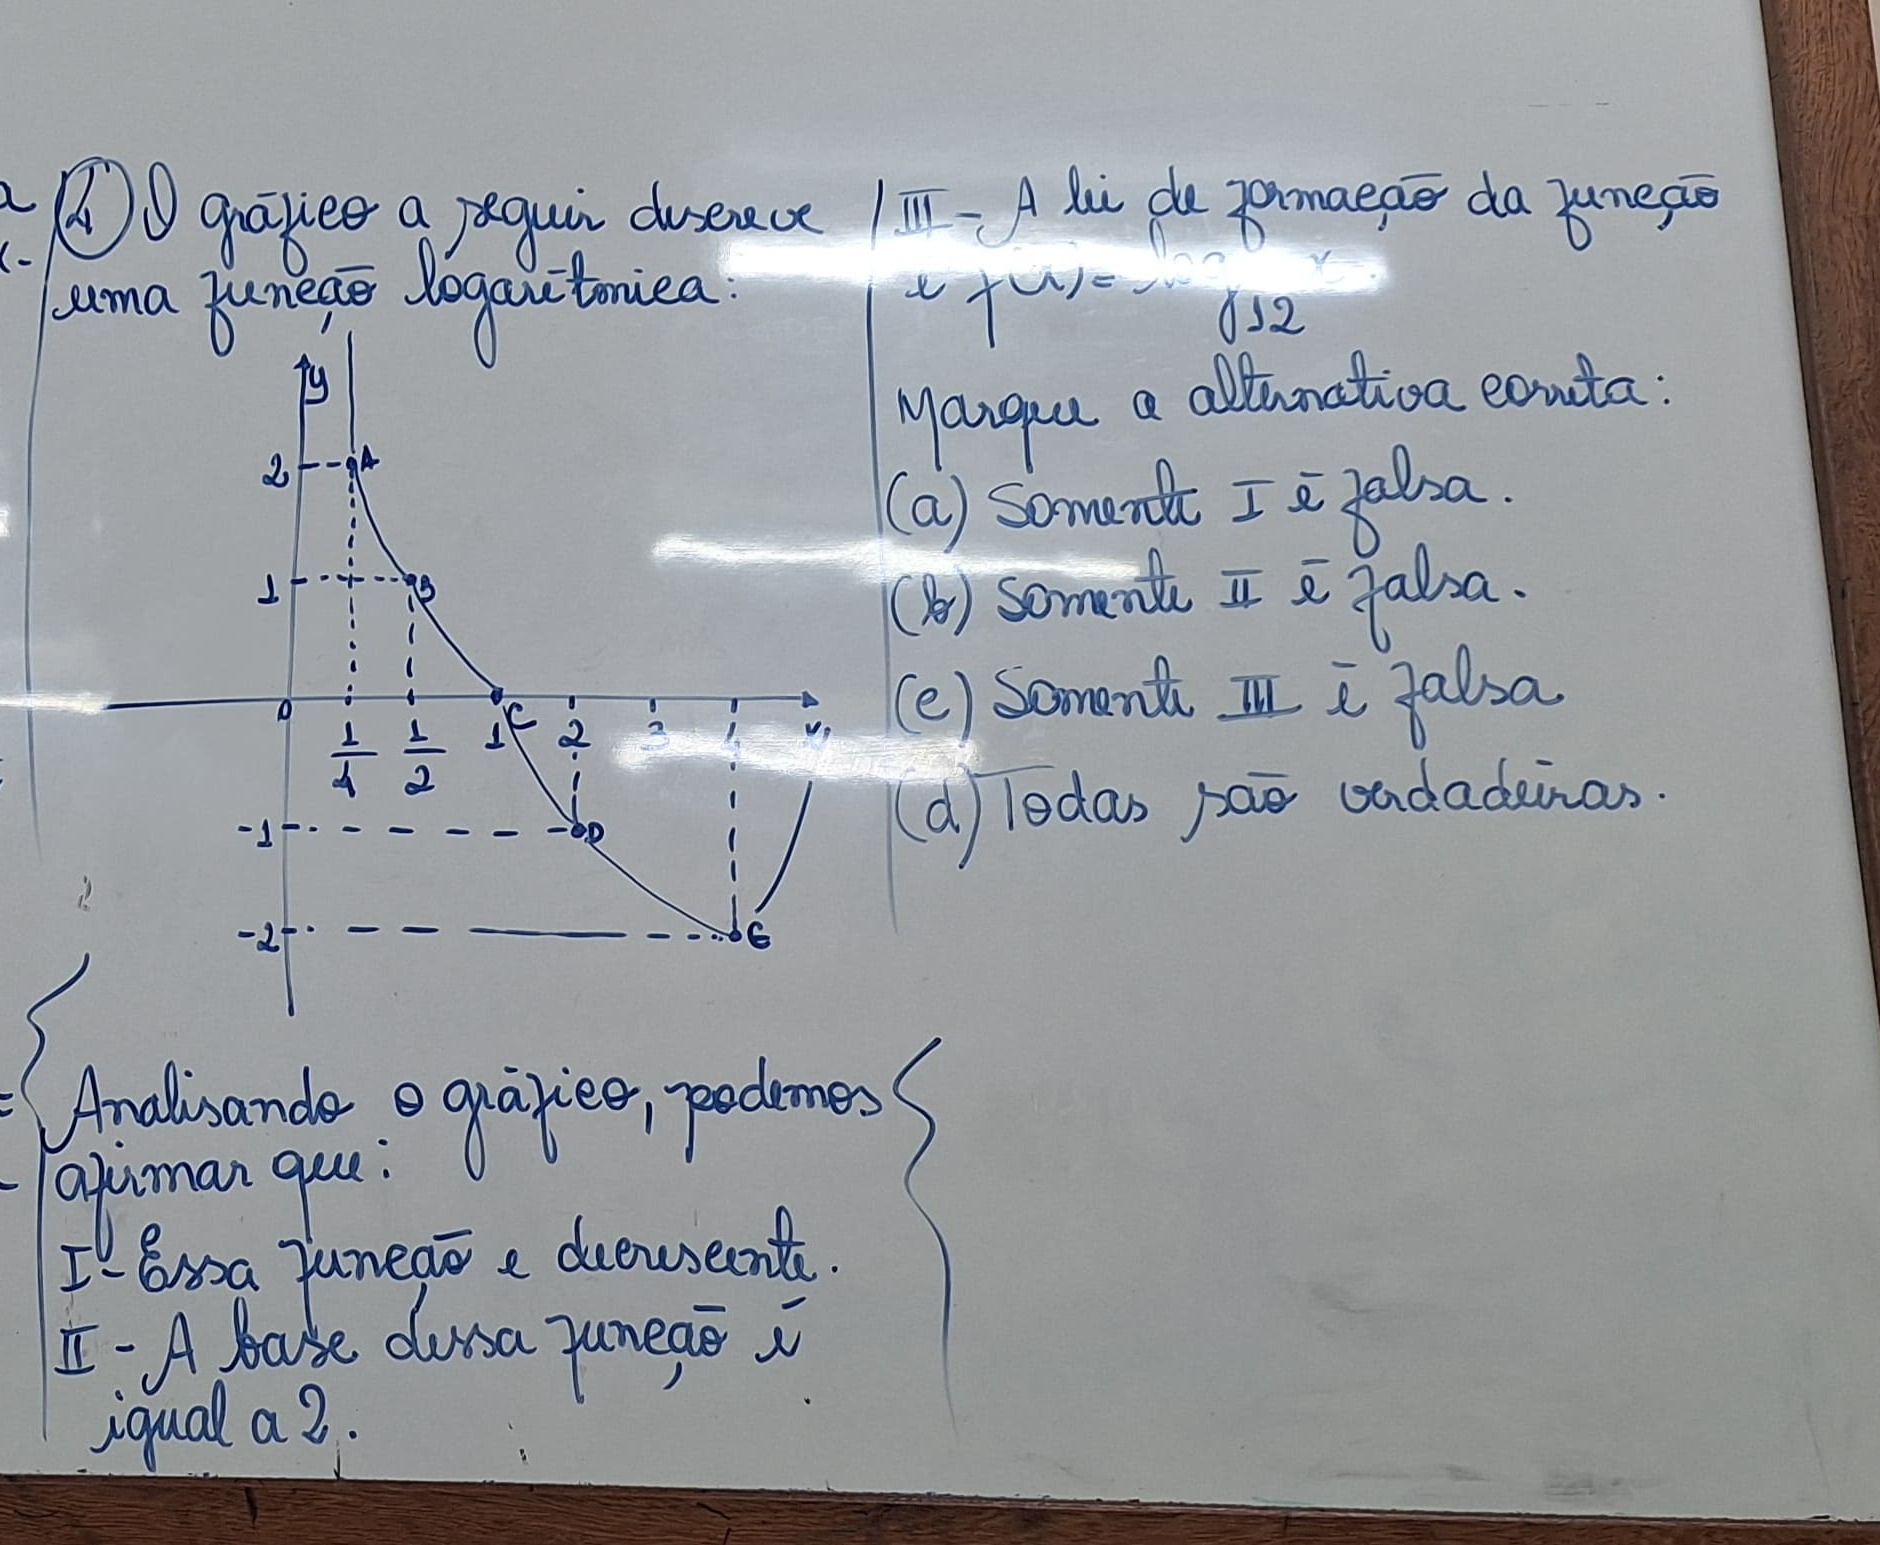 4 O gráfico a seguir descreve
uma função logarítmica:
y
2 A
1 B
0 1/4 1/2 1 C 2 3 4 x
-1 D
-2 E
Analisando o gráfico, podemos
afirmar que:
I - Essa função e decrescente.
II - A base dessa função é
igual a 2.
III - A lei de formaeção da função
é f(x) = log12 x.
Marque a alternativa correta:
(a) Somente I é falsa.
(b) Somente II é falsa.
(c) Somente III é falsa
(d) Todas são verdadeiras.